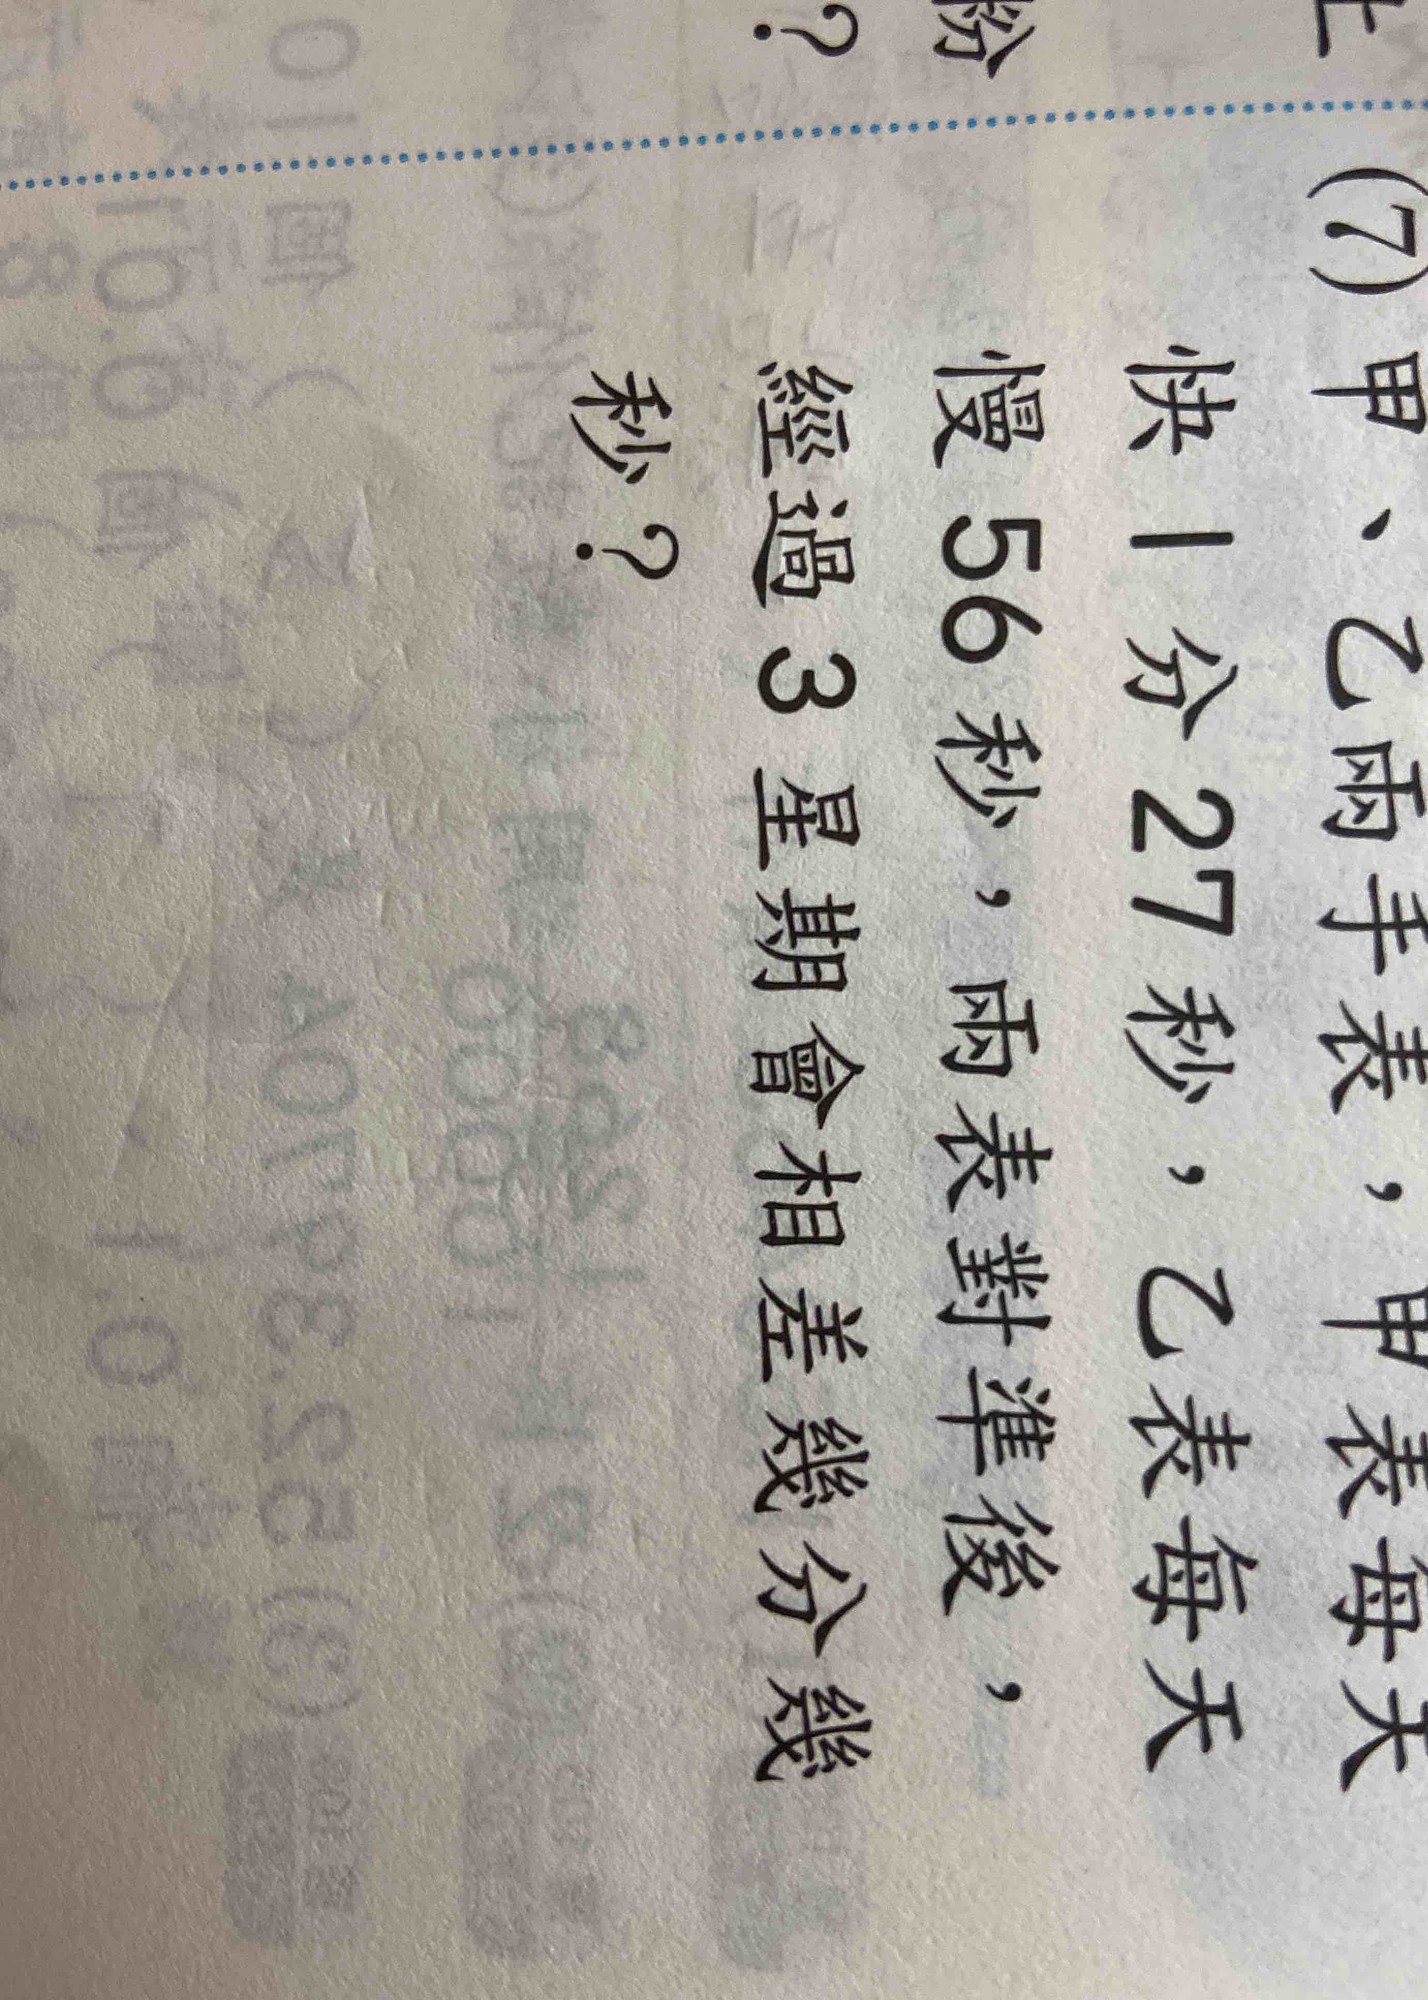 上
粉
？
(7)甲、乙兩手表，甲表每天
快1分27秒，乙表每天
慢56秒，兩表對準後，
經過3星期會相差幾分幾
秒？